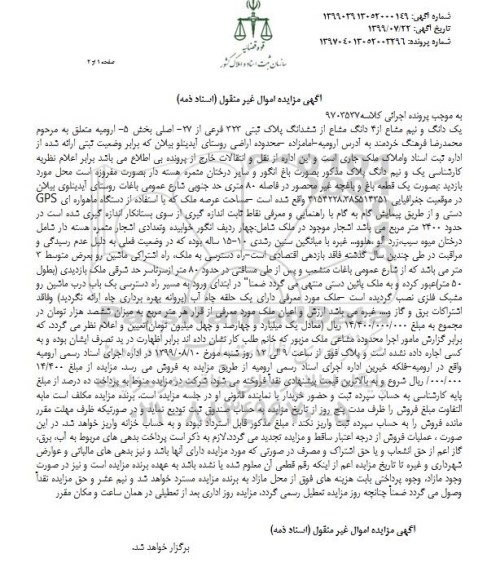 شماره آگهی: ۱۳۹۹۰۳۹۱۳۰۵۲۰۰۰۱۴۹
تاریخ آگهی: ۱۳۹۹/۰۷/۲۲
شماره پرونده: ۱۳۹۷۰۴۰۱۳۰۵۲۰۰۳۲۹۶
قوه قضاییه
سازمان ثبت اسناد و املاک کشور
صفحه ۱ از ۲
آگهی مزایده اموال غیر منقول (اسناد ذمه)
به موجب پرونده اجرائی کلاسه ۹۷۰۳۵۳۷
یک دانگ و نیم مشاع از ۴ دانگ مشاع از ششدانگ پلاک ثبتی ۳۲۲ فرعی از ۲۷- اصلی بخش ۵- ارومیه متعلق به مرحوم
محمدرضا فرهنگ خردمند به آدرس ارومیه-امامزاده -محدوده اراضی روستای آیدینلو بیلان که برابر وضعیت ثبتی ارائه شده از
اداره ثبت اسناد واملاک ملک جاری است و این اداره از نقل و انتقالات خارج از پرونده بی اطلاع می باشد برابر اعلام نظریه
کارشناسی یک و نیم دانگ پلاک مذکور بصورت باغ انگور و سایر درختان مثمره هسته دار بصورت مفروزه است محل مورد
بازدید بصورت یک قطعه باغ و باغچه غیر محصور در فاصله ۸۰ متری حد جنوبی شارع عمومی باغات روستای آیدینلوی بیلان
در موقعیت جغرافیایی ۴۱۵۴۲۲۸،۳۸S۵۱۴۲۵۱ واقع شده است -مساحت عرصه ملک که با استفاده از دستگاه ماهواره ای GPS
دستی و از طریق پیمایش گام به گام با راهنمایی و معرفی نقاط ثابت اندازه گیری از سوی بستانکار اندازه گیری شده است در
حدود ۲۴۰۰ متر مربع می باشد اشجار موجود در ملک شامل:چهار ردیف انگور خوابیده وتعدادی اشجار مثمره هسته دار شامل
درختان میوه سیب،زرد آلو ،هلوو… غیره با میانگین سنین رشدی ۱۰-۱۵ ساله بوده که در وضعیت فعلی به دلیل عدم رسیدگی و
مراقبت در طی چندین سال گذشته فاقد بازدهی اقتصادی است-راه دسترسی به ملک، راه اشتراکی ماشین رو بعرض متوسط ۳
متر می باشد که از شارع عمومی باغات منشعب و پس از طی مسافتی در حدود ۸۰ متر ازسرتاسر حد شرقی ملک بازدیدی (بطول
۵۰ متر)عبور کرده و به ملک پائین دستی منتهی می گردد ضمنا" در ابتدای ورود به مسیر راه دسترسی یک باب درب ماشین رو
مشبک فلزی نصب گردیده است -ملک مورد معرفی دارای یک حلقه چاه آب (پروانه بهره برداری چاه ارائه نگردید) وفاقد
اشتراکات برق و گاز و… غیره می باشد ارزش و اعیان ملک مورد معرفی از قرار هر متر مربع به میزان ششصد هزار تومان در
مجموع به مبلغ ۱۴/۴۰۰/۰۰۰/۰۰۰ ریال (معادل یک میلیارد و چهارصد و چهل میلیون تومان)تعیین و اعلام نظر می گردد، که
برابر گزارش مامور اجرا محدوده مشاعی ملک مزبور که خانم طلب کار نشان داده اند برابر اظهارت در ید تصرف ایشان بوده و به
کسی اجاره داده نشده است و پلاک فوق از ساعت ۹ الی ۱۲ روز شنبه مورخ ۱۳۹۹/۰۸/۱۰ در اداره اجرای اسناد رسمی ارومیه
واقع در ارومیه-فلکه خیرین اداره اجرای اسناد رسمی ارومیه از طریق مزایده به فروش می رسد، مزایده از مبلغ ۱۴/۴۰۰
/۰۰۰/۰۰۰ ریال شروع و به بالاترین قیمت پیشنهادی نقداً فروخته می شود. شرکت در مزایده منوط به پرداخت ده درصد از مبلغ
پایه کارشناسی به حساب سپرده ثبت و حضور خریدار یا نماینده قانونی او در جلسه مزایده است، برنده مزایده مکلف است مابه
التفاوت مبلغ فروش را ظرف مدت پنج روز از تاریخ مزایده به حساب صندوق ثبت تودیع نماید و در صورتیکه ظرف مهلت مقرر
مانده فروش را به حساب سپرده ثبت واریز نکند ، مبلغ مذکور قابل استرداد نبوده و به حساب خزانه واریز خواهد شد. در این
صورت ، عملیات فروش از درجه اعتبار ساقط و مزایده تجدید می گردد،لازم به ذکر است پرداخت بدهی های مربوط به آب، برق،
گاز اعم از حق انشعاب و یا حق اشتراک و مصرف در صورتی که مورد مزایده دارای آنها باشد و نیز بدهی های مالیاتی و عوارض
شهرداری و غیره تا تاریخ مزایده اعم از اینکه رقم قطعی آن معلوم شده یا نشده باشد به عهده برنده مزایده است و نیز در صورت
وجود مازاد، وجوه پرداختی بابت هزینه های فوق از محل مازاد به برنده مزایده مسترد خواهد شد و نیم عشر و حق مزایده نقداً
وصول می گردد ضمناً چنانچه روز مزایده تعطیل رسمی گردد، مزایده روز اداری بعد از تعطیلی در همان ساعت و مکان مقرر
آگهی مزایده اموال غیر منقول (اسناد ذمه)
برگزار خواهد شد.